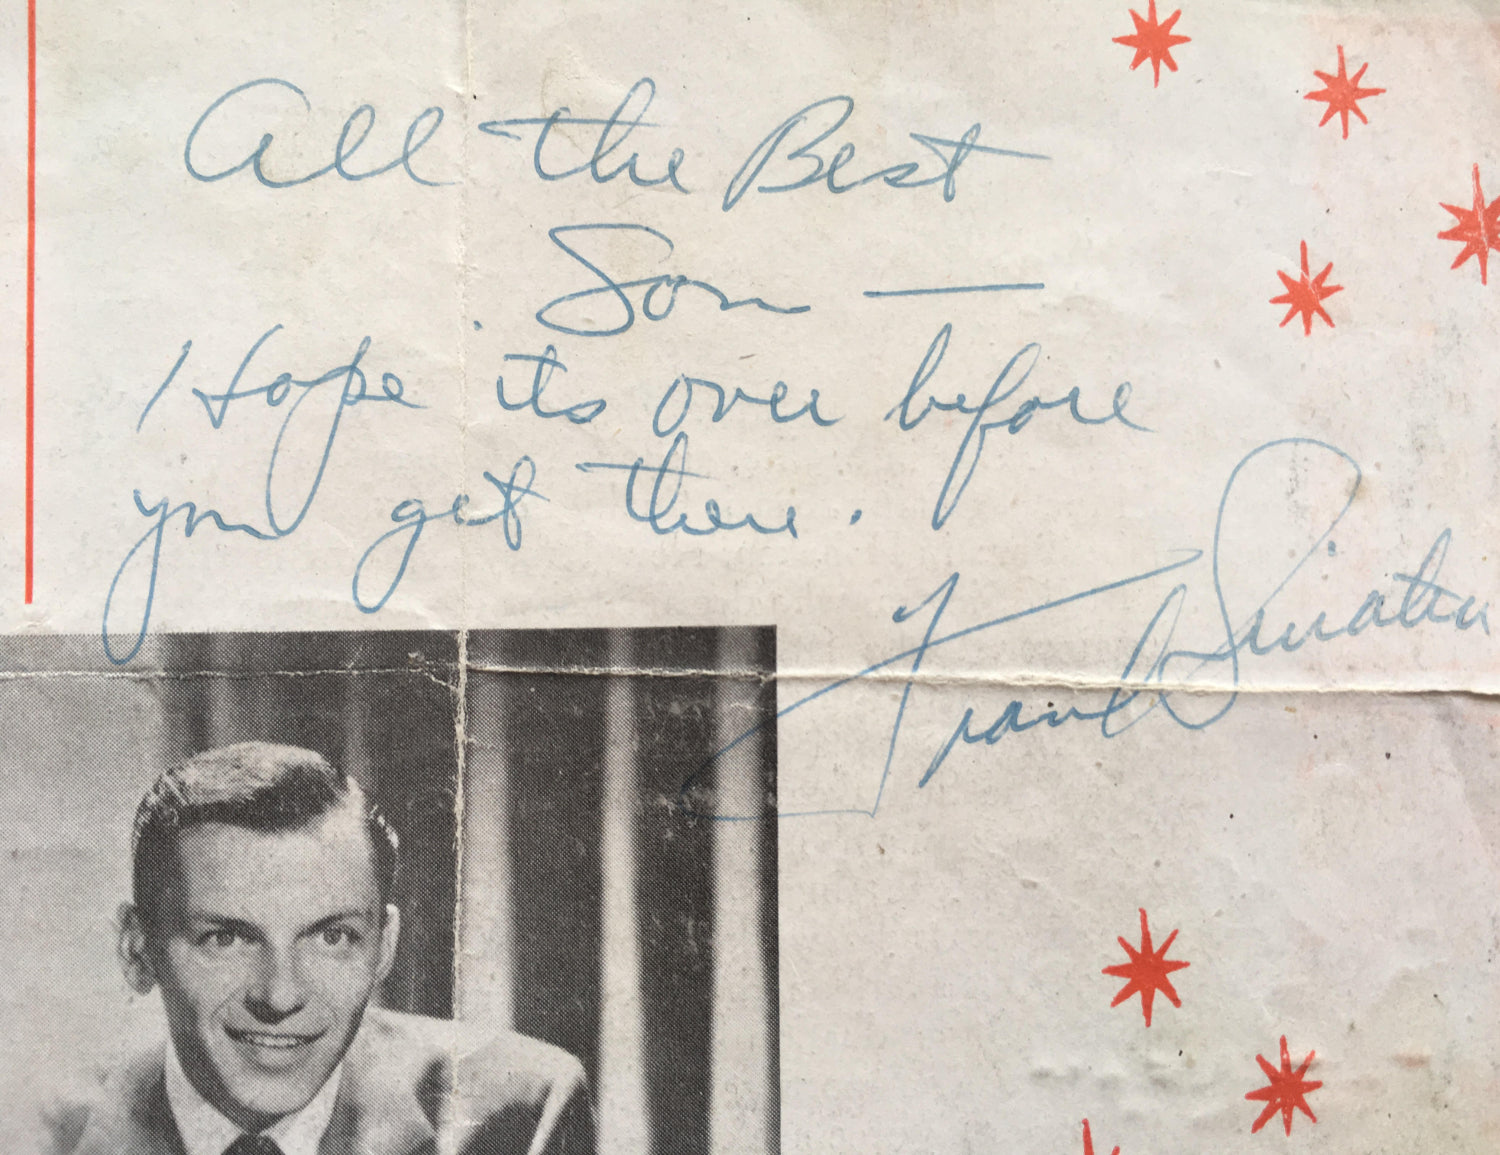 All the Best
Son —
Hope its over before
you get there.
Frank Sinatra